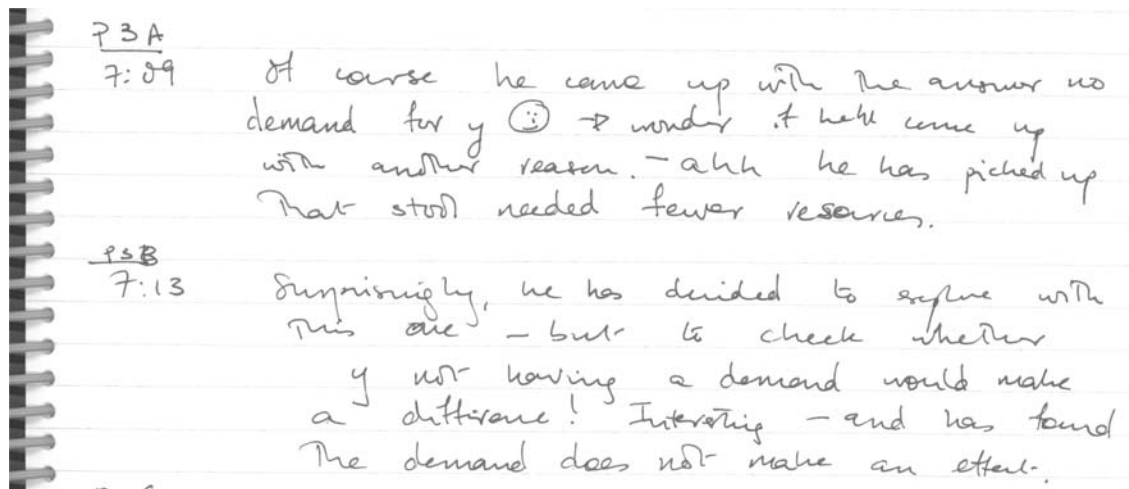 P3A
7:09 Of course he came up with the answer no
demand for y ☺ → wonder if he'll come up
with another reason. – ahh he has picked up
that stool needed fewer resources.
P3B
7:13 Surprisingly, he has decided to explore with
this one – but to check whether
y not having a demand would make
a difference! Interesting – and has found
the demand does not make an effect.